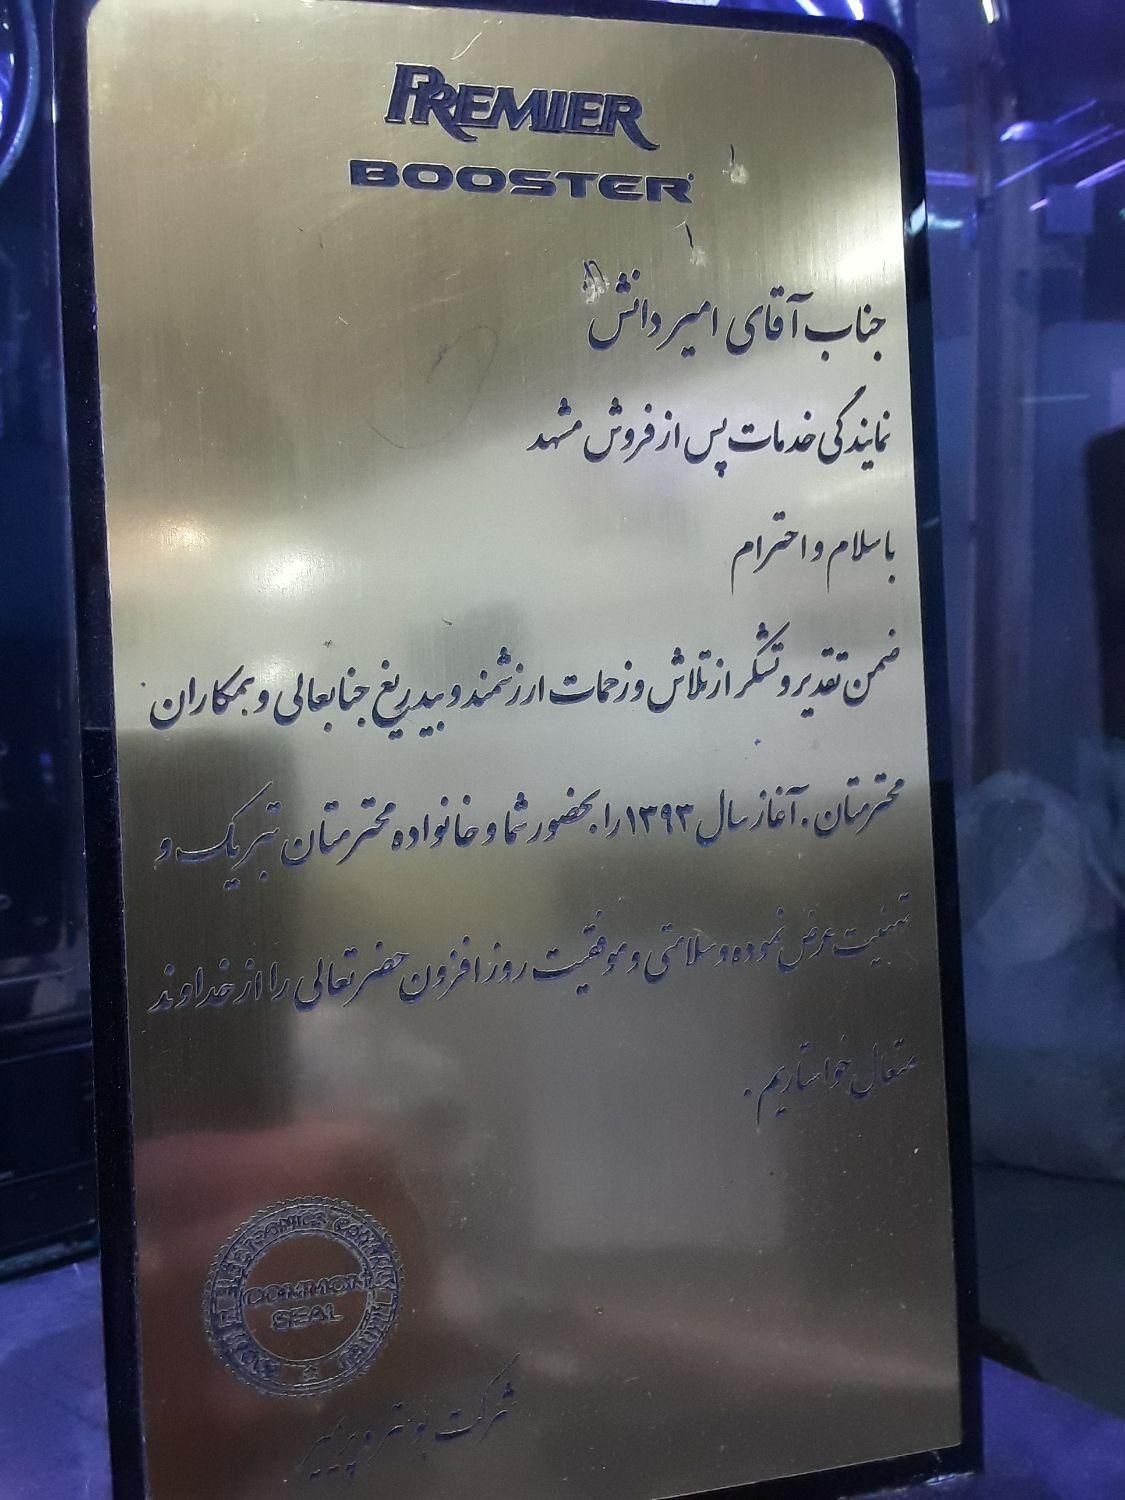 PREMIER
BOOSTER
جناب آقای امیر دانش
نمایندگی خدمات پس از فروش مشهد
با سلام و احترام
ضمن تقدیر و تشکر از تلاش و زحمات ارزشمند و بیدریغ جنابعالی و همکاران
محترمتان . آغاز سال ۱۳۹۳ را بحضور شما و خانواده محترمتان تبریک و
تهنیت عرض نموده و سلامتی و موفقیت روز افزون حضرتعالی را از خداوند
متعال خواستاریم .
ELECTRONICS COMPANY LIMITED
COMMON
SEAL
شرکت بوستر و پریمیر